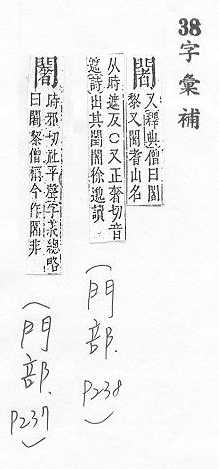 38 字彙補
闍 又釋典僧曰闍
黎又闍者山名
从時遮反○又正奢切音
遮詩出其闉闍徐邈讀
(門部. P238)
闍 時邪切社平聲字義總略
曰闍黎僧稱今作闍非
(門部. P237)